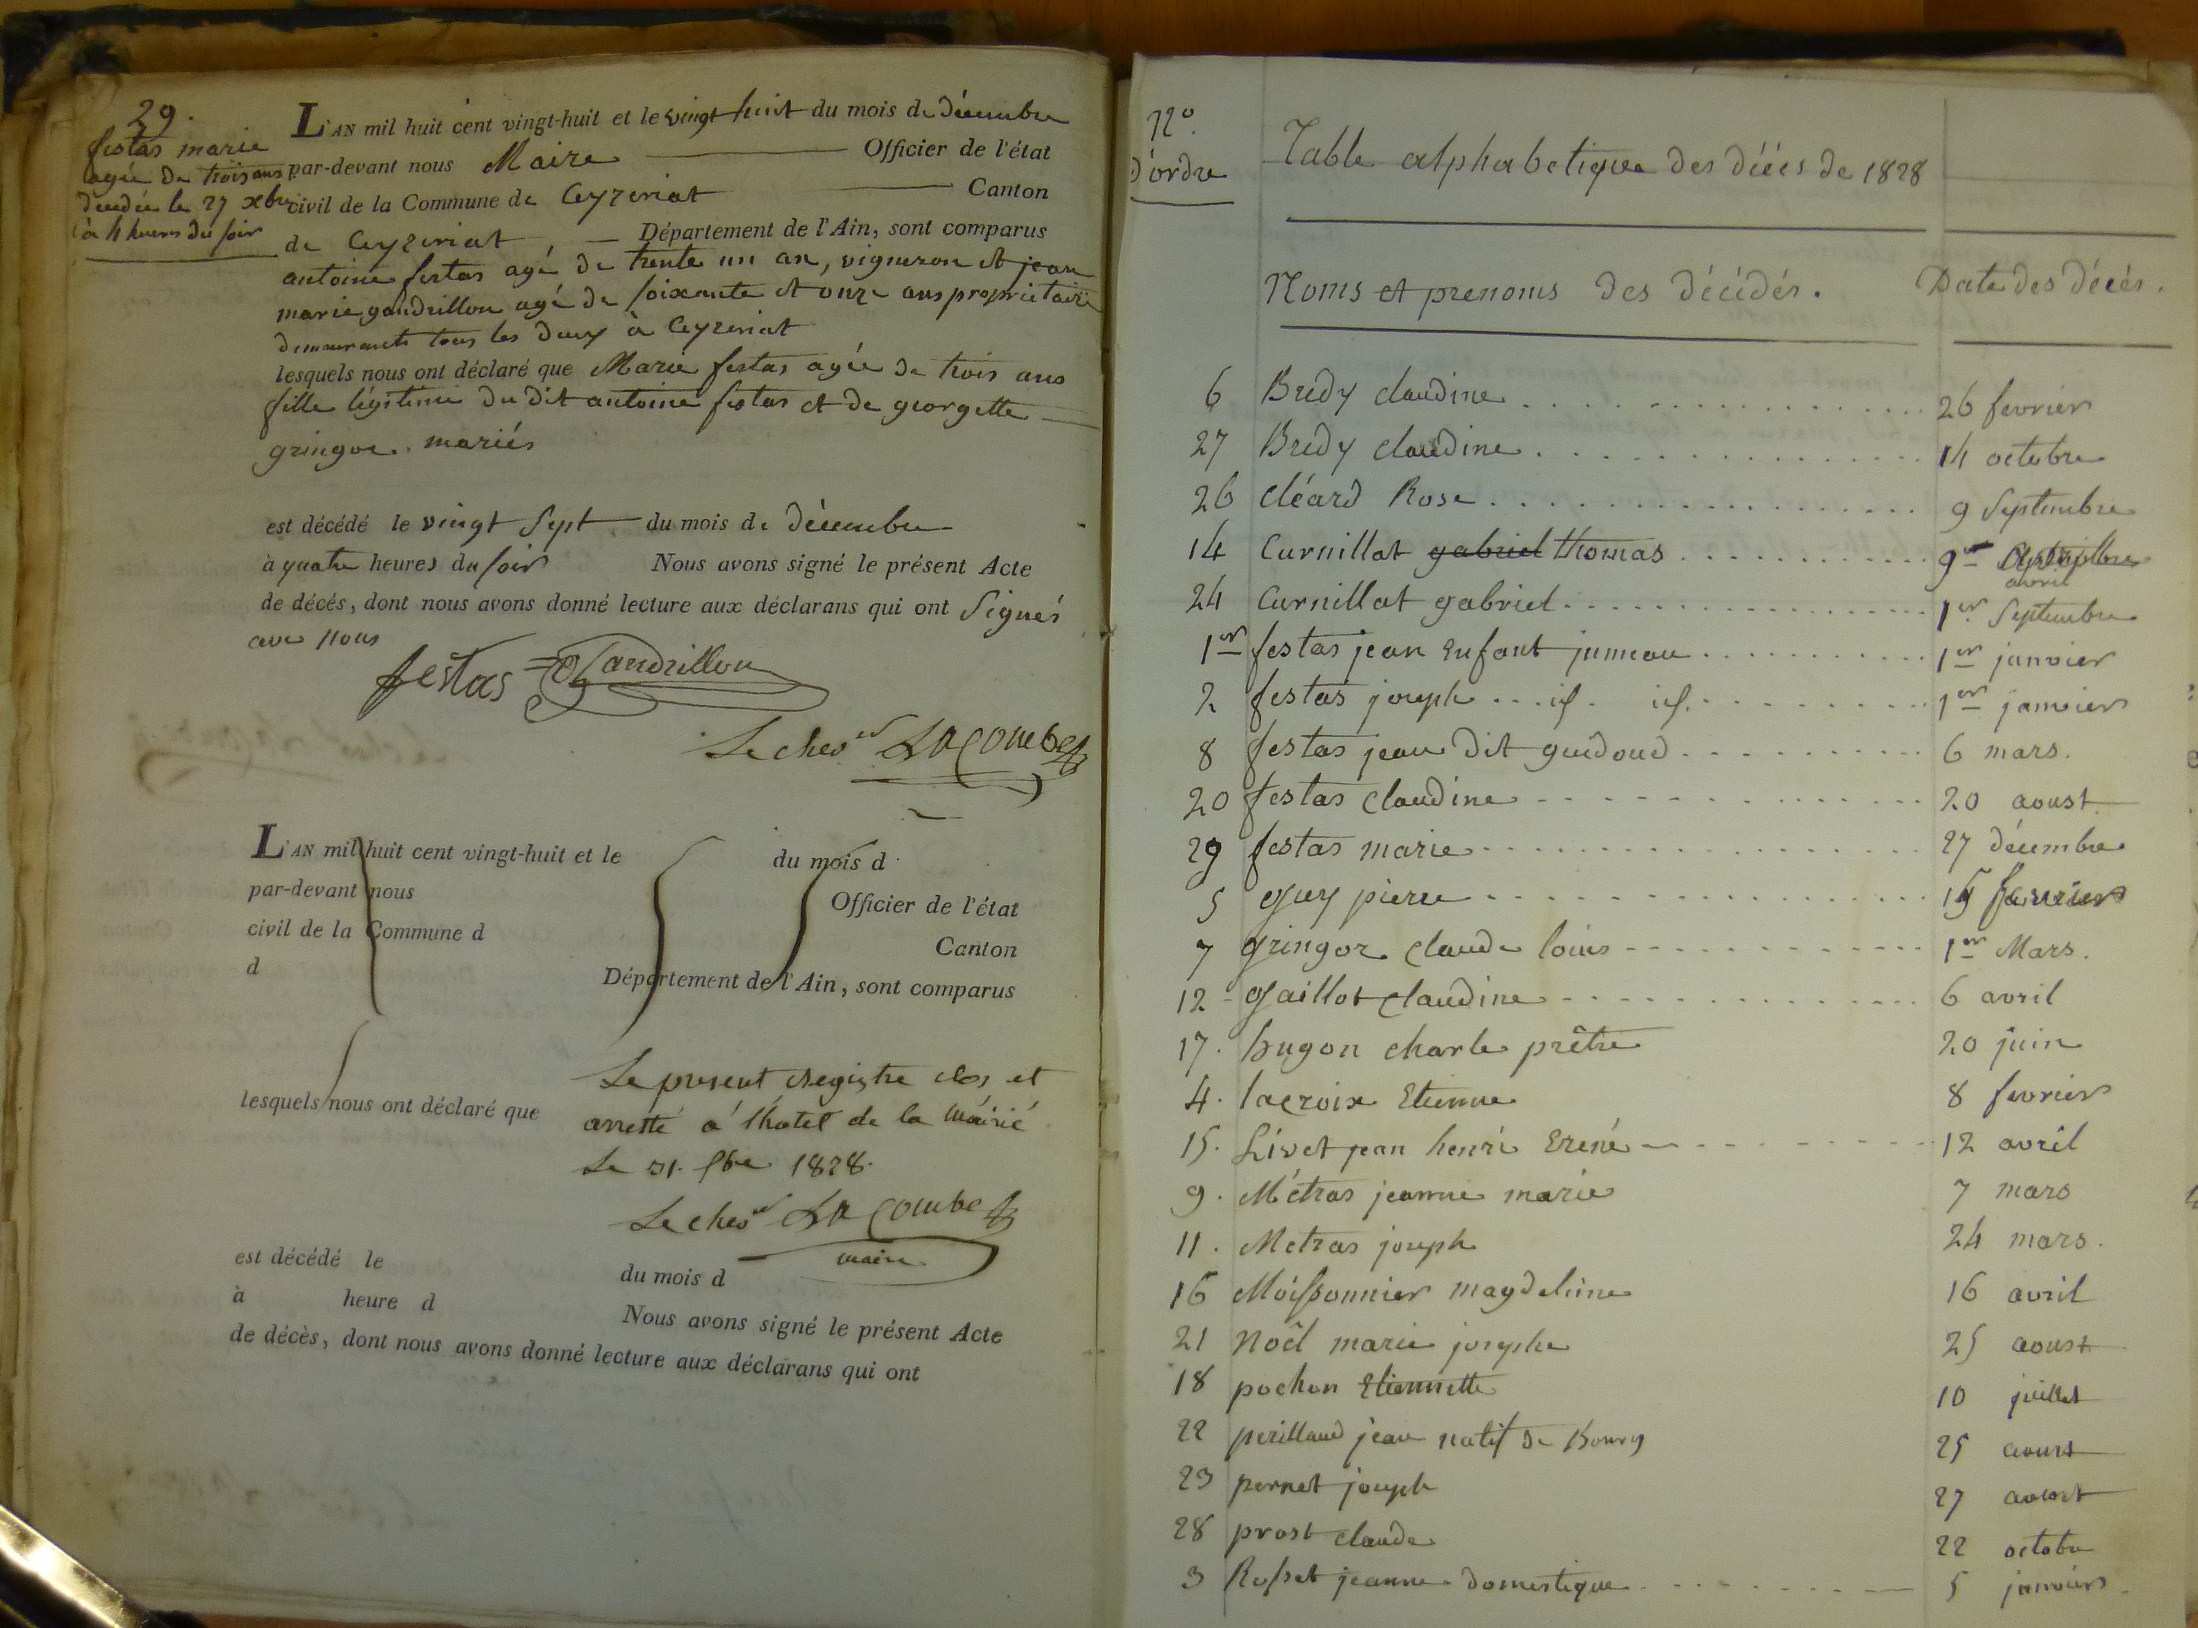 29.
festas marie
agée de trois ans
décédée le 27 xbre
à 4 heures du soir
L'AN mil huit cent vingt-huit et le vingt huit du mois de décembre
par-devant nous Maire Officier de l'état
civil de la Commune de Ceyzeriat Canton
de Ceyzeriat Département de l'Ain, sont comparus
antoine festas agé de trente un an, vigneron et jean
marie gandrillon agé de soixante et onze ans proprietaire
demeurants tous les deux à Ceyzeriat
lesquels nous ont déclaré que Marie festas agée de trois ans
fille légitime du dit antoine festas et de georgette
gringoz mariés
est décédé le vingt sept du mois de décembre
à quatre heures du soir Nous avons signé le présent Acte
de décés, dont nous avons donné lecture aux déclarans qui ont signés
avec nous
festas Gandrillon
Le chev.er LACOMBE
L'AN mil huit cent vingt-huit et le du mois d
par-devant nous Officier de l'état
civil de la Commune d Canton
d Département de l'Ain, sont comparus
lesquels nous ont déclaré que
Le present Registre clos et
arretté à l'hotel de la mairie
Le 31. Xbre 1828.
Le chev.er LACOMBE
maire
est décédé le du mois d
à heure d Nous avons signé le présent Acte
de décès, dont nous avons donné lecture aux déclarans qui ont
N.º
D'ordre
Table alphabetique des décés de 1828
Noms et prenoms des décédés. Date des décés.
6 Bredy claudine 26 fevrier
27 Bredy claudine 14 octobre
26 cléard Rose 9 Septembre
14 Curnillat gabriel thomas 9 avril
24 Curnillat gabriel 1er Septembre
1er festas jean Enfant jumeau 1er janvier
2 festas joseph id. id. 1er janvier
8 festas jean dit guidoud 6 mars.
20 festas claudine 20 aoust
29 festas marie 27 décembre
5 guy pierre 15 fevrier
7 gringoz claude louis 1er Mars.
12 gaillot claudine 6 avril
17. hugon charle prêtre 20 juin
4. lacroix Etienne 8 fevrier
15. Livet jean henri Erené 12 avril
9. Métras jeanne marie 7 mars
11. Metras joseph 24 mars.
16 Moissonnier magdeleine 16 avril
21 Noël marie josephe 25 aoust
18 pochon Etiennette 10 juillet
22 perillaud jean natif de Bourg 25 aoust
23 pernet joseph 27 aoust
28 prost claude 22 octobre
3 Rosset jeanne domestique 5 janvier